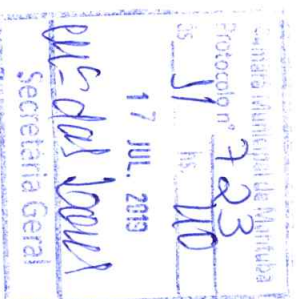 Câmara Municipal de Marituba
Protocolo nº 723
às 11 hs 40
17 JUL. 2019
Secretaria Geral